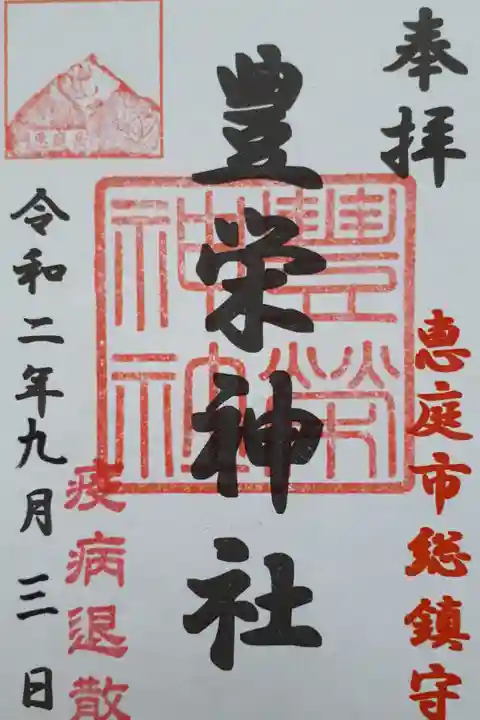 奉拝
恵庭市総鎮守
豊栄神社
豊榮神社
令和二年九月三日
疫病退散